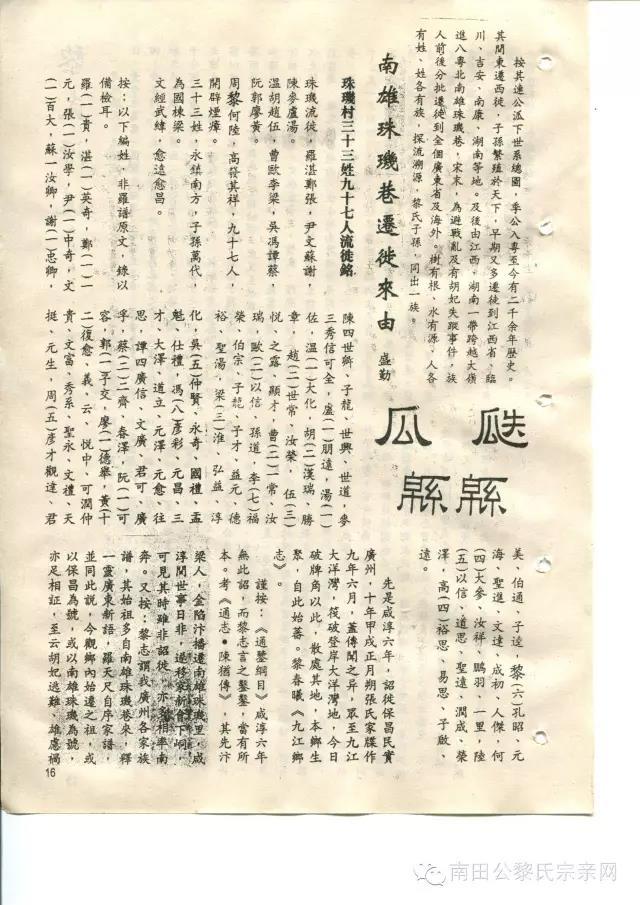 按其連公派下世系總圖，季公入粵至今有二千余年歷史。
其間東遷西徙，子孫繁殖於天下，早期又多遷徒到江西省、臨
川、吉安、南康、湖南等地。及後由江西，湖南一帶跨越大嶺
進入粵北南雄珠璣巷，宋末，為避戰亂及有胡妃失蹤事件，族
人前後分批遷徒到全個廣東省及海外。樹有根、水有源、人各
有姓、姓各有族，探流溯源，黎氏子孫，同出一族。
南雄珠璣巷遷徙來由
盛勤
珠璣村三十三姓九十七人流徙銘
珠璣流徙，羅湛鄭張，尹文蘇謝，
陳麥盧湯。
溫胡趙伍，曹歐李梁，吳馮譚蔡，
阮郭廖黃。
周黎何陸，高發其祥，九十七人，
開辟煙瘴。
三十三姓，永鎮南方，子孫萬代，
為國棟梁。
文經武緯，愈遠愈昌。
按：以下編姓，非羅譜原文，錄以
備檢耳。
羅(一)貴，湛(一)英奇，鄭(一)一
元，張(一)汝學，尹(一)中奇，文
(一)百大，蘇一汝卿，謝(一)忠卿，
瓜瓞
緜緜
陳四世卿、子龍、世興、世道，麥
三秀信可全，盧(一)朋遠，湯(一)
佐，溫(一)大化，胡(二)漢瑞、勝
章，趙(二)世常、汝榮，伍(三)
悅、之露、顯才，曹(二)一常、汝
瑞，歐(二)以信、孫道，李(七)福
榮、伯宗、子龍、子才、益元、德
裕、聖湯，梁(三)淮、弘益、淳
化，吳(五)仲賢、永奇、國禮、孟
魁、仕禮，馮(八)彥彩、元昌、三
才、大澤、道立、元澤、元愈、往
思，譚四廣信、文廣、君可、廣
孚，蔡(二)齊、春澤，阮(一)可
容，郭(一)子交，廖(一)德舉，黃(十
二)復愈、義、云、悅中、可潤仲
貴、文富、秀系、聖永、文禮、天
挺、元生，周(五)彥才觀達、君
美、伯通、子逵，黎(六)孔昭、元
海、聖進、文達、成初、人傑，何
(四)大參、汝祥、鵬羽、一里，陸
(五)以信、道思、聖遠、潤成、榮
澤，高(四)裕思、易思、子啟、
遠。
先是咸淳六年，詔徙保昌民實
廣州，十年甲戌正月朔張氏家牒作
九年六月，蓋傳聞之异，眾至九江
大洋灣，筏破登岸大洋灣地，今日
破牌角以此，散處其地，本鄉生
聚，自此始蕃。黎春曦《九江鄉
志》。
謹按：《通鑒綱目》咸淳六年
無此詔，而黎志言之鑿鑿，當有所
本。考《通志•陳猶傳》，其先汴
梁人，金陷汴播遷南雄珠璣里，咸
淳間世事日非，遂移家新會下峒，
可見其時雖非詔徙，亦多相率南
奔。又按：黎志謂我廣州各家族
譜，其始祖多自南雄珠璣巷來，釋
一靈廣東新語，羅天尺自序家譜，
並同此說，今觀鄉內始遷之祖，或
以保昌為號，或以南雄珠璣為號，
亦足相証，至云胡妃逃難、雄慮禍
16
南田公黎氏宗亲网